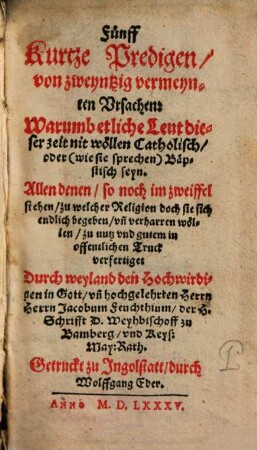 Fünff
Kurtze Predigen/
von zweyntzig vermeyn-
ten Vrsachen:
Warumb etliche Leut die-
ser zeit nit wöllen Catholisch/
oder (wie sie sprechen) Bäp-
stisch seyn.
Allen denen/ so noch im zweiffel
stehen/ zu welcher Religion doch sie sich
endlich begeben/ vñ verharren wöl-
len/ zu nutz vnd gutem in
offentlichen Truck
verfertiget
Durch weyland den Hochwirdi-
gen in Gott/ vñ hochgelehrten Herrn
Herrn Jacobum Feuchthium/ der H.
Schrifft D. Weyhbischoff zu
Bamberg/ vnd Keys:
May: Rath.
Getruckt zu Ingolstatt/ durch
Wolffgang Eder.
ANNO M. D. LXXXV.